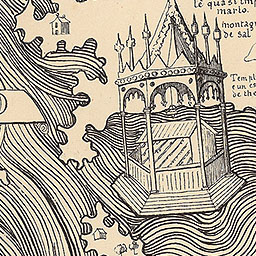 le quasi imp
marlo.
montag
de sal
Templ
e un es
de the